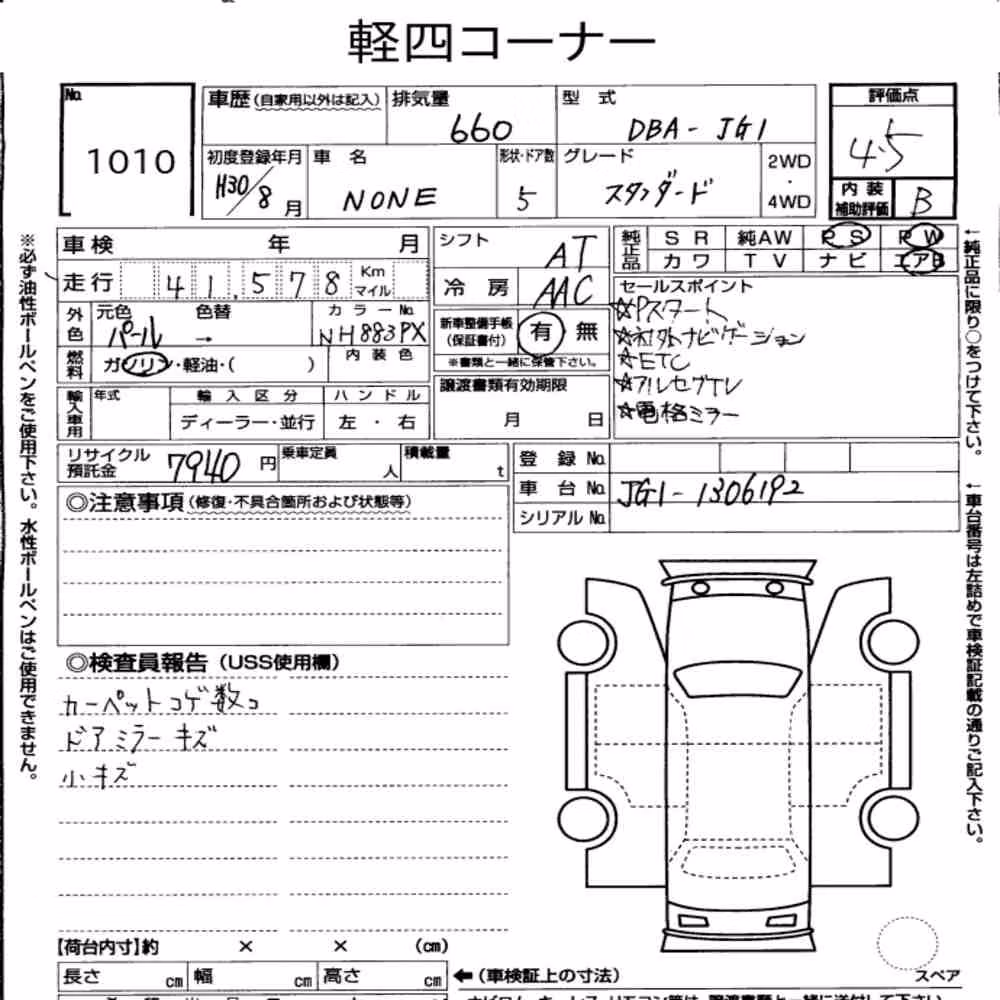 軽四コーナー
No.
1010
車歴(自家用以外は記入)
排気量
660
型式
DBA-JG1
評価点
4.5
初度登録年月
H30/8月
車名
NONE
形状・ドア数
5
グレード
スタンダード
2WD
・
4WD
内装
補助評価
B
車検 年 月
シフト
AT
純正品
SR 純AW PS PW
カワ TV ナビ エアB
走行 41,578 Km
マイル
冷房
AAC
セールスポイント
☆Pスタート
☆社外ナビゲーション
☆ETC
☆フルセグTV
☆電格ミラー
外色
元色 色替 カラーNo.
パール → NH883PX
新車整備手帳
(保証書付)
有 無
※書類と一緒に保管下さい。
燃料
ガソリン・軽油・( )
内装色
譲渡書類有効期限
月 日
輸入車用
年式
輸入区分
ハンドル
ディーラー・並行
左・右
リサイクル
預託金
7940円
乗車定員
人
積載量
t
登録No.
車台No.
JG1-1306192
シリアルNo.
◎注意事項(修復・不具合箇所および状態等)
◎検査員報告(USS使用欄)
カーペットコゲ数コ
ドアミラーキズ
小キズ
【荷台内寸】約 × × (cm)
長さ cm 幅 cm 高さ cm
←(車検証上の寸法)
スペア
※必ず油性ボールペンをご使用下さい。水性ボールペンはご使用できません。
←純正品に限り○をつけて下さい。
←車台番号は左詰めで車検証記載の通りご記入下さい。